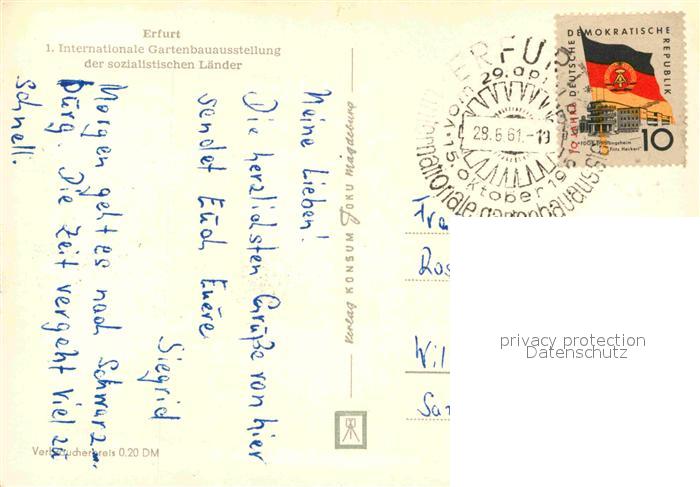 Erfurt
1. Internationale Gartenbauausstellung
der sozialistischen Länder
Meine Lieben!
Die herzlichsten Grüße von hier
sendet Euch Euere
Siegrid
Morgen geht es nach Schwarz-
burg. Die Zeit vergeht viel zu
schnell.
Verbraucherpreis 0.20 DM
Verlag KONSUM FOKU Magdeburg
ERFURT
29. ap
28.6.61.-19
15. oktober 19
internationale gartenbauausst
DEUTSCHE DEMOKRATISCHE REPUBLIK
10 JAHRE
FDGB
Fritz Heckert
10
Fra
Ros
Wil
privacy protection
Datenschutz